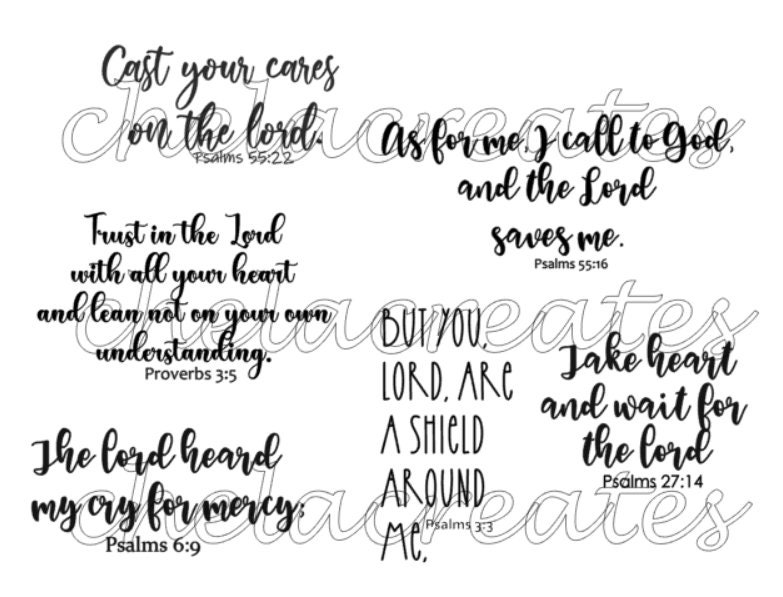 Cast your cares
on the lord.
Psalms 55:22
As for me, I call to God,
and the Lord
saves me.
Psalms 55:16
Trust in the Lord
with all your heart
and lean not on your own
understanding.
Proverbs 3:5
BUT YOU,
LORD, ARE
A SHIELD
AROUND
Me,
Psalms 3:3
Take heart
and wait for
the lord
Psalms 27:14
The lord heard
my cry for mercy;
Psalms 6:9
chelacreates
chelacreates
chelacreates